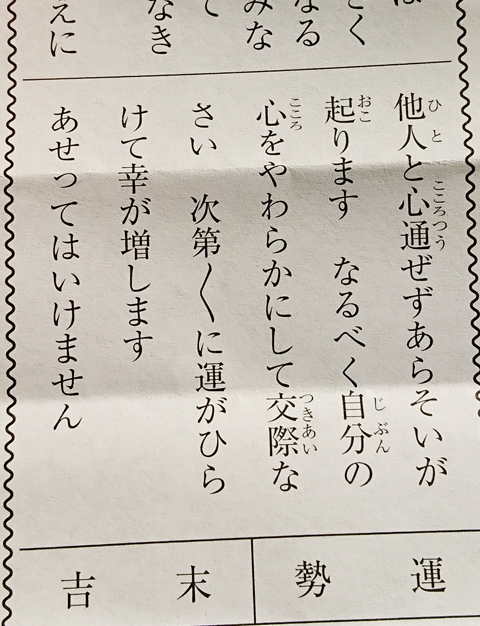 く
なる
みな
て
なき
えに
ひと こころつう
他人と心通ぜずあらそいが
おこ じぶん
起ります なるべく自分の
こころ つきあい
心をやわらかにして交際な
さい 次第〳〵に運がひら
けて幸が増します
あせってはいけません
運勢
末吉